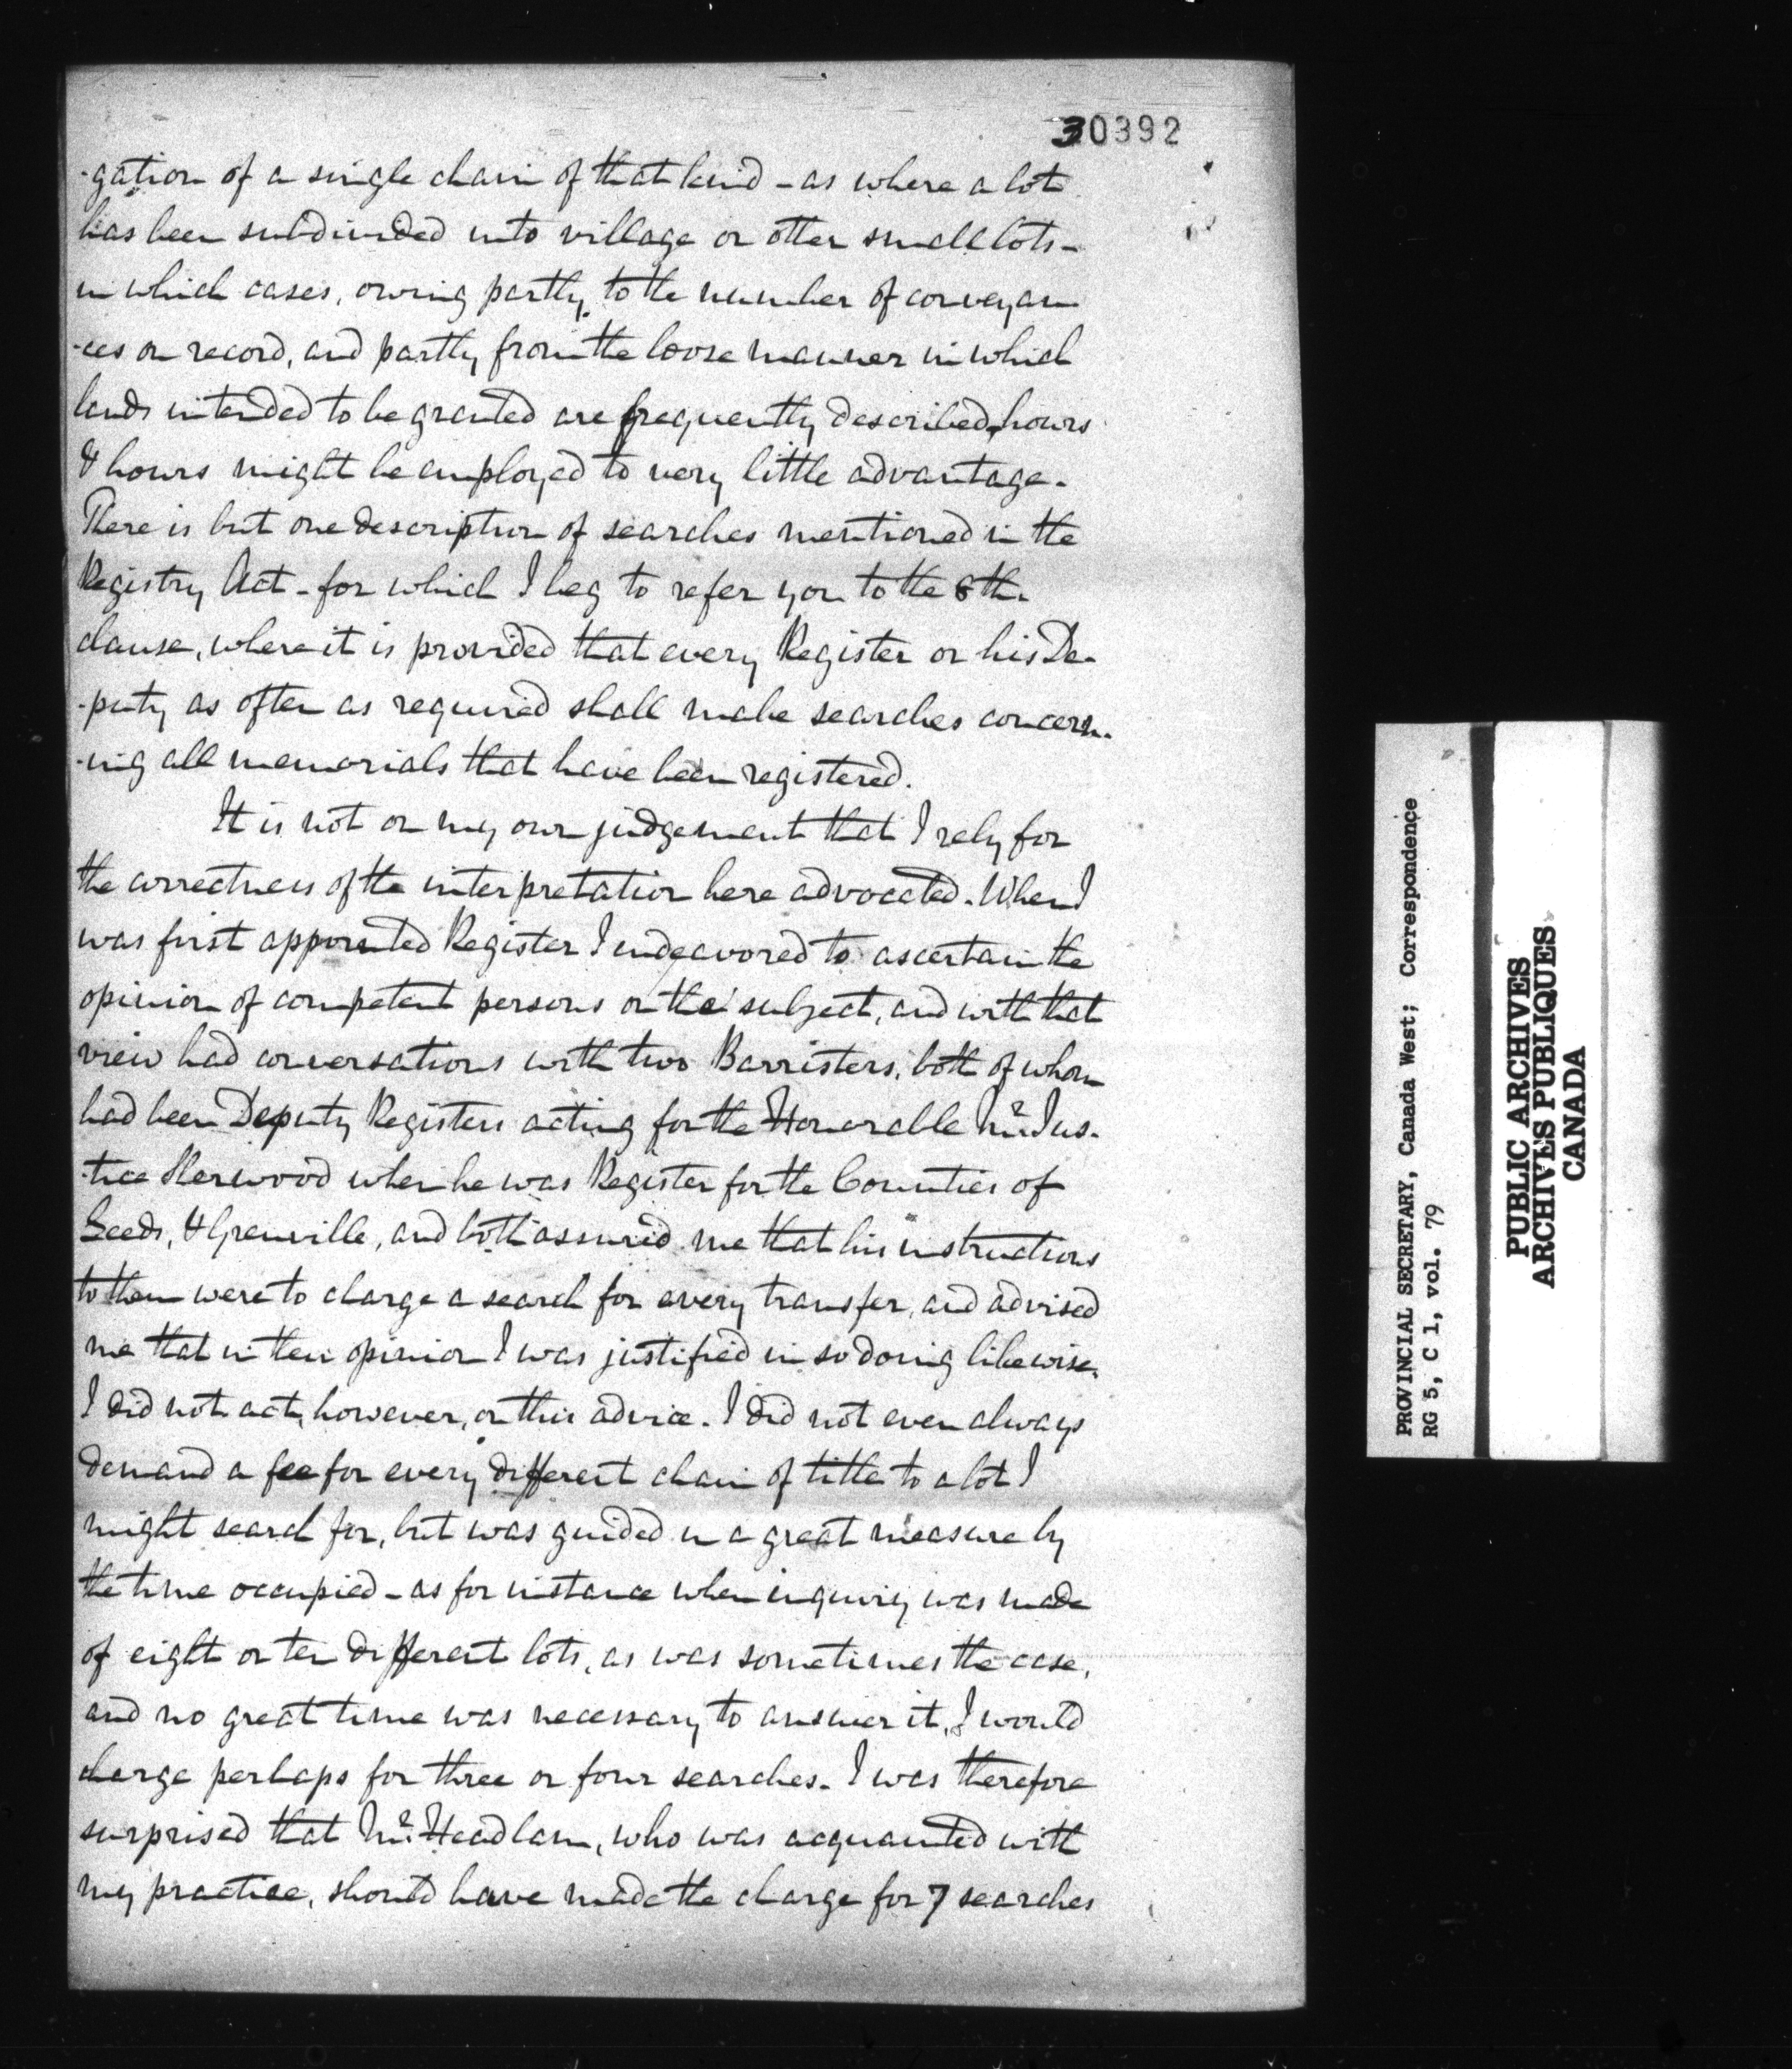 30392
-gation of a single chain of that kind - as where a lot
has been subdivided into village or other small lots -
in which cases, owing partly to the number of conveyan
-ces on record, and partly from the loose manner in which
lands intended to be granted are frequently described, hours
& hours might be employed to very little advantage.
There is but one description of searches mentioned in the
Registry Act - for which I beg to refer you to the 8th.
clause, where it is provided that every Register or his De-
-puty as often as required shall make searches concern-
-ing all memorials that have been registered.
It is not on my own judgement that I rely for
the correctness of the interpretation here advocated. When I
was first appointed Register I endeavored to ascertain the
opinion of competent persons on the subject, and with that
view had conversations with two Barristers, both of whom
had been Deputy Registers acting for the Honorable Mr. Jus-
-tice Sherwood when he was Register for the Counties of
Leeds, & Grenville, and both assured me that his instructions
to them were to charge a search for every transfer, and advised
me that in their opinion I was justified in so doing likewise.
I did not act, however, on their advice. I did not even always
demand a fee for every different chain of title to a lot I
might search for, but was guided in a great measure by
the time occupied - as for instance when inquiry was made
of eight or ten different lots, as was sometimes the case,
and no great time was necessary to answer it, I would
charge perhaps for three or four searches. I was therefore
surprised that Mr. Headlam, who was acquainted with
my practice, should have made the charge for 7 searches
PROVINCIAL SECRETARY, Canada West; Correspondence
RG 5, C 1, vol. 79
PUBLIC ARCHIVES
ARCHIVES PUBLIQUES
CANADA